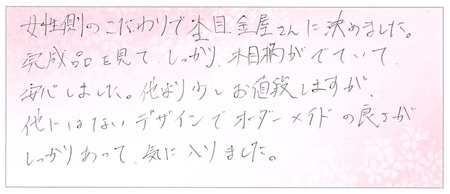 女性側のこだわりで杢目金屋さんに決めました。
完成品を見て、しっかり、木目柄がでていて、
安心しました。他より少しお値段しますが、
他にはないデザインでオーダーメイドの良さが
しっかりあって、気に入りました。